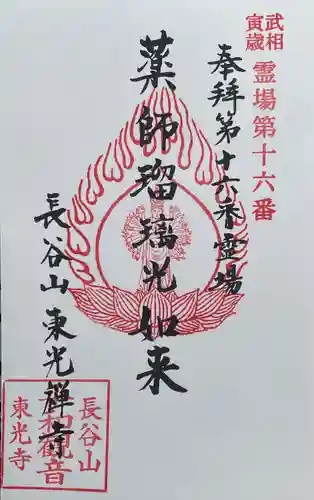 武相
寅歳
霊場第十六番
奉拝第十六番霊場
薬師瑠璃光如来
長谷山東光禅寺
長谷山
和観音
東光寺